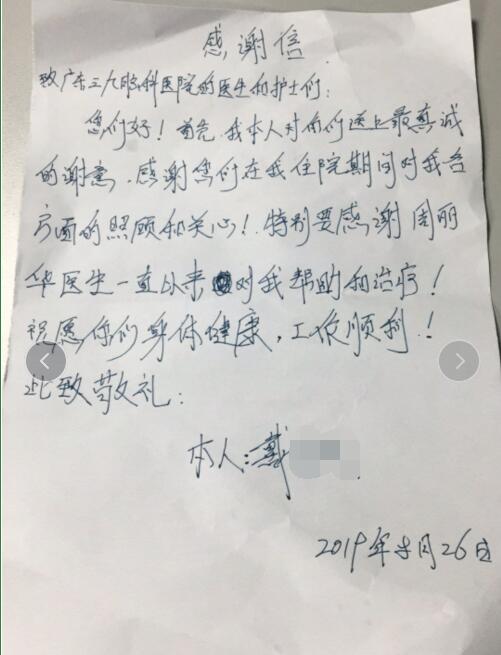 感谢信
致广东三九脑科医院的医生和护士们:
您们好!首先,我本人对你们送上最真诚
的谢意.感谢您们在我住院期间对我各
方面的照顾和关心!特别要感谢周丽
华医生一直以来对我帮助和治疗!
祝愿你们身体健康,工作顺利!
此致敬礼:
本人:戴
2019年 月26日